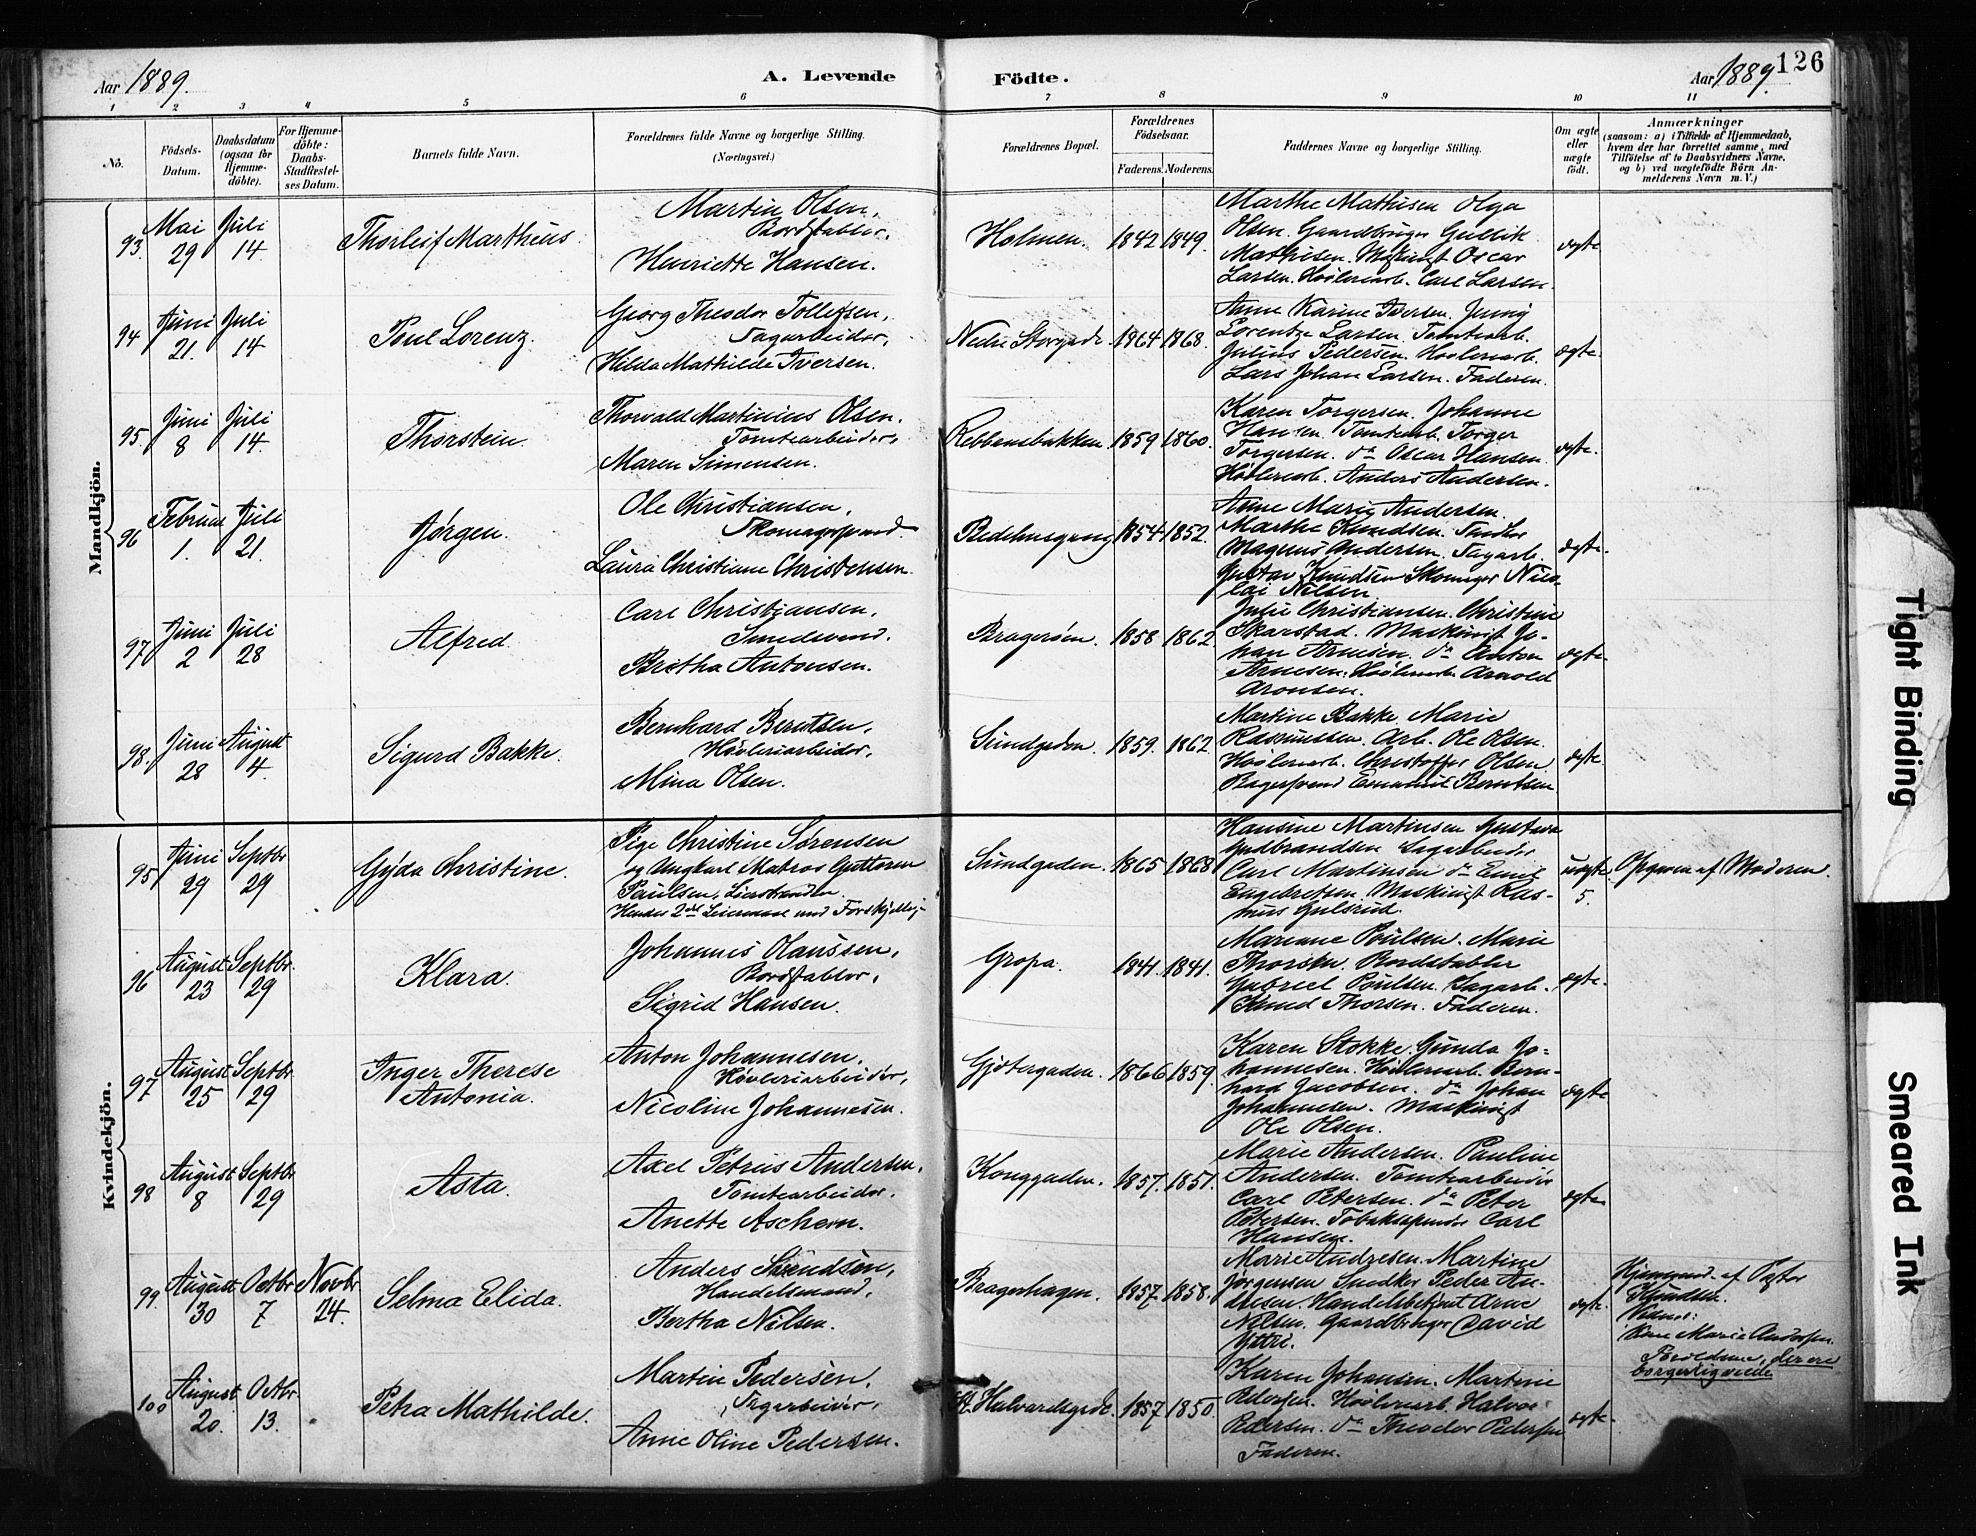 Aar 1889.
A. Levende Födte.
Aar 1889. 126
1 2 3 4 5 6 7 8 9 10 11
No.
Födsels-Datum.
Daabsdatum (ogsaa for Hjemme-döbte).
For Hjemme-döbte: Daabs-Stadfæstel-ses Datum.
Barnets fulde Navn.
Forældrenes fulde Navne og borgerlige Stilling.
(Næringsvei.)
Forældrenes Bopæl.
Forældrenes Födselsaar.
Faderens. Moderens.
Faddernes Navne og borgerlige Stilling.
Om ægte eller uægte födt.
Anmærkninger
(saasom: a) i Tilfælde af Hjemmedaab,
hvem der har forrettet samme, med
Tilföielse af to Daabsvidners Navne.
og b) ved uægtefödte Börn An-
melderens Navn m. V.)
Mandkjön.
93. Mai 29 Juli 14
Thorleif Martheus.
Martin Olsen,
Bordstabler,
Henriette Hansen.
Holmen. 1842 1849.
Marthe Mathisen Olga
Olsen. Gaardbruger Gullik
Mathisen. Oscar
Larsen. Høvleriarb. Carl Larsen.
ægte
94 Juni 21. Juli 14
Poul Lorenz.
Georg Theodor Tollefsen,
Sagarbeider,
Hilda Mathilde Iversen.
Nedre Storgade. 1864 1868.
Anne Karine Iversen. Jenny
Lorentze Larsen. Tomtearb.
Julius Pedersen. Høvleriarb.
Lars Johan Larsen. Faderen.
ægte.
95. Juni 8 Juli 14.
Thorstein.
Thorvald Martinius Olsen.
Tomtearbeider,
Maren Simensen.
Rebbansbakken. 1859 1860.
Karen Torgersen. Johanne
Hansen. Tomtearb. Torger
Torgersen. do Oscar Hansen.
Høvleriarb. Anders Andersen.
ægte.
96 Februar 1. Juli 21.
Jørgen.
Ole Christiansen,
Skomagersvend.
Laura Christiane Christensen.
Bedehusgang 1854 1852.
Anne Marie Andersen.
Marthe Knudsen. Snedker
Magnus Andersen. Sagarb.
Gustav Knudsen Skomager Nico-
lai Nilsen
ægte.
97 Juni 2 Juli 28
Alfred.
Carl Christiansen,
Smedsvend.
Bertha Antonsen.
Bragerøen. 1858 1862.
Julie Christiansen. Christine
Skarstad. Maskinist Jo-
han Arnesen. do Anton
Arnesen. Høvleriarb. Arnold
Aronsen.
ægte.
98. Juni 28 August 4.
Sigurd Bakke.
Bernhard Berntsen,
Høvleriarbeider,
Mina Olsen.
Sundgaden. 1859. 1862.
Martine Bakke. Marie
Rasmussen. Arb. Ole Olsen.
Høvleriarb. Christoffer Olsen
Bagersvend Emanuel Berntsen
ægte.
Kvindekjön.
95 Juni 29 Septbr 29
Gyda Christine.
Pige Christine Sørensen
og Ungkarl Matros Guttorm
Paulsen, Lierstranden
Hendes 2det Leiermaal med Forskjellig
Sundgaden. 1865 1868
Hansine Martinsen Gustava
Gudbrandsen Sagarbeider
Carl Martinsen do Emil
Engebretsen. Maskinist Ras-
mus Gulsrud.
uægte. 5.
Opgiven af Moderen.
96 August 23 Septbr. 29
Klara.
Johannes Olaussen,
Bordstabler,
Sigrid Hansen.
Gropa. 1841. 1841.
Mariane Poulsen. Marie
Thorsen. Bordstabler
Gabriel Poulsen. Sagarb.
Knud Thorsen. Faderen.
ægte.
97 August 25 Septbr 29
Inger Therese
Antonia.
Anton Johannesen,
Høvleriarbeider,
Nicoline Johannesen.
Gjetergaden. 1866 1859.
Karen Stokke. Gunda Jo-
hannesen. Høvleriarb. Bern-
hard Jacobsen. do Johan
Johannesen. Maskinist
Ole Olsen.
ægte
98 August 8 Septbr 29
Asta.
Axel Petrus Andersen,
Tomtearbeider,
Anette Aschem.
Konggaden. 1857. 1851.
Marie Andersen. Pauline
Andersen. Tomtearbeider
Carl Petersen. do Peter
Petersen. Tobaksspinder Carl
Hansen.
ægte.
99. August 30 Octbr 7 Novbr 24.
Selma Elida.
Anders Svendsen,
Handelsmand,
Bertha Nilsen.
Bragerhagen. 1857 1858.
Marie Andresen. Martine
Jørgensen Snedker Peder An-
dresen. Handelsbetjent Arne
Nilsen. Gaardbruger David
Yttri.
ægte.
Hjemmed. af Pastor
Knudsen.
Marie Andersen.
Forældrene, der ere
borgerlig viede
100 August 20. Octbr. 13.
Petra Mathilde.
Martin Pedersen,
Sagarbeider,
Anne Oline Pedersen.
St. Halvardsgade. 1857 1850.
Karen Johansen. Martine
Pedersen. Høvleriarb. Halvor
Pedersen. do Theodor Pedersen
Faderen.
ægte
Tight Binding
Smeared Ink